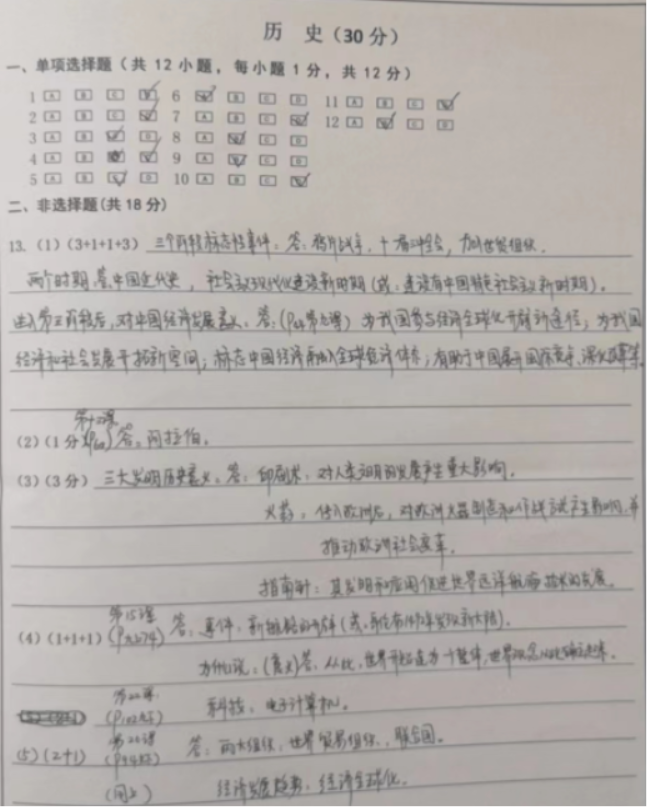 历 史(30分)
一、单项选择题(共 12 小题,每小题 1 分,共 12 分)
1 A B C D 6 A B C D 11 A B C D
2 A B C D 7 A B C D 12 A B C D
3 A B C D 8 A B C D
4 A B C D 9 A B C D
5 A B C D 10 A B C D
二、非选择题(共 18 分)
13.(1)(3+1+1+3) 三个阶段标志性事件:答:鸦片战争,十一届三中全会,加入世贸组织.
两个时期:答:中国近代史,社会主义现代化建设新时期(或:建设有中国特色社会主义新时期).
进入第三阶段后,对中国经济发展意义.答: 为我国参与经济全球化开辟新途径,为我国
经济和社会发展开拓新空间;标志中国经济融入全球经济体系;有助于中国展开国际竞争、深化改革等.
(2)(1分) 答:阿拉伯.
(3)(3分) 三大发明历史意义.答:印刷术:对人类文明的发展产生重大影响.
火药:传入欧洲后,对欧洲火器制造和作战方式产生影响,并
推动欧洲社会变革.
指南针:其发明和应用促进世界远洋航海技术的发展.
(4)(1+1+1) 第15课 答:事件:新航路的开辟(或:哥伦布 发现新大陆).
(意义)答:从此,世界开始连为一个整体,
新科技:电子计算机.
(5)(2+1) 答:两大组织:世界贸易组织,联合国.
(同上) 经济发展趋势:经济全球化.